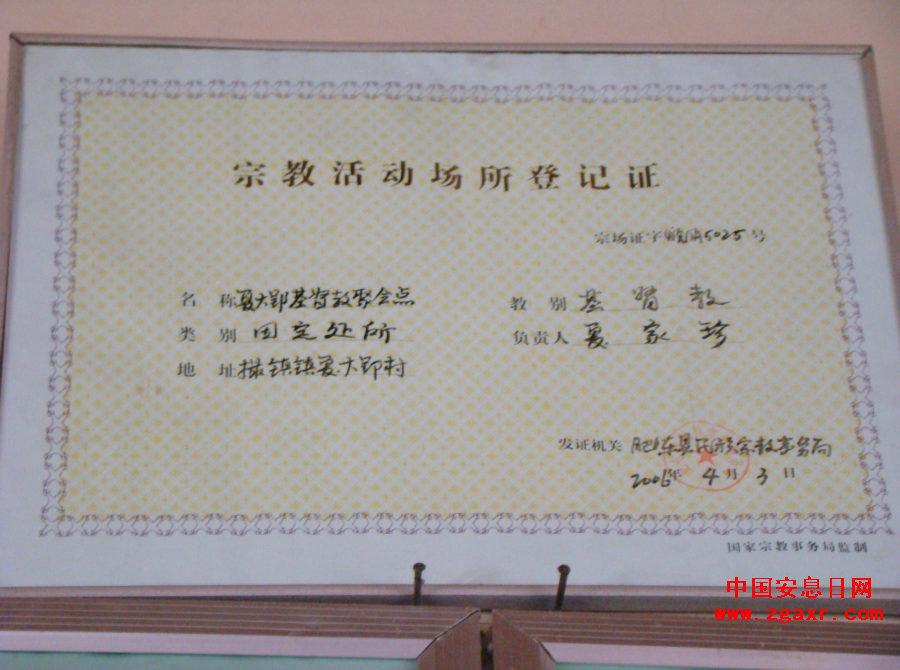 宗教活动场所登记证
宗场证字(皖)A5025号
名 称 夏大郢基督教聚会点
教 别 基督教
类 别 固定处所
负责人 夏家珍
地 址 撮镇镇夏大郢村
发证机关 肥东县民族宗教事务局
2006年4月3日
国家宗教事务局监制
中国安息日网
www.zgaxr.com